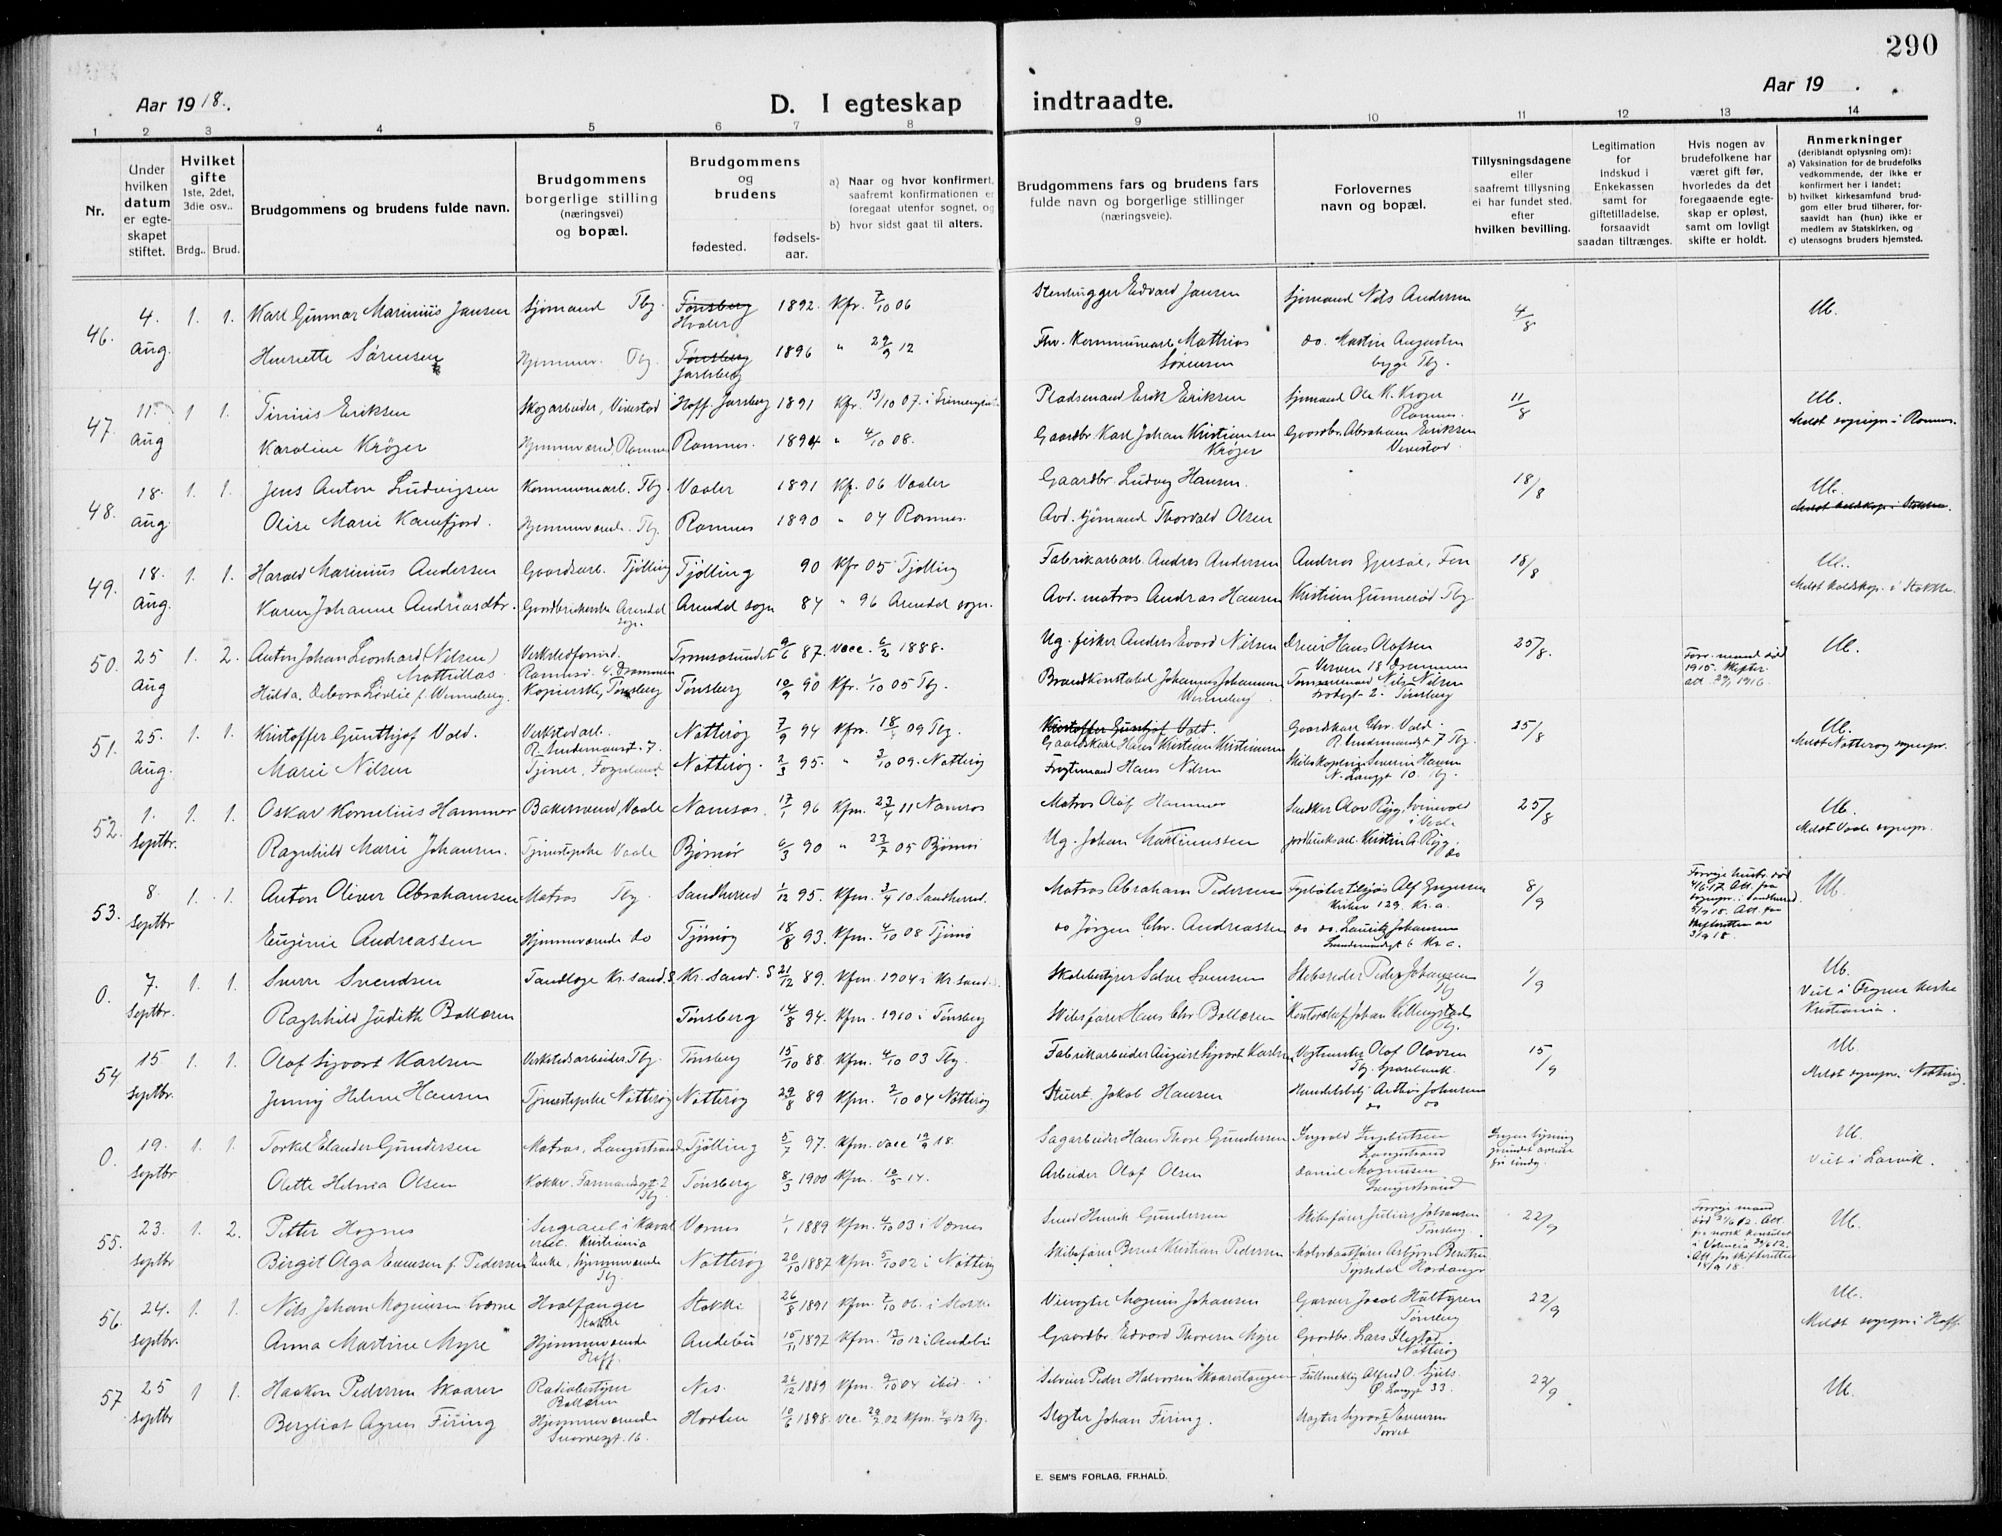 290
Aar 1918.
D. I egteskap indtraadte.
Aar 19
1 2 3 4 5 6 7 8 9 10 11 12 13 14
Nr.
Under hvilken datum er egteskapet stiftet.
Hvilket gifte
1ste, 2det, 3die osv..
Brdg.. Brud.
Brudgommens og brudens fulde navn.
Brudgommens borgerlige stilling (næringsvei) og bopæl.
Brudgommens og brudens
fødested.
fødselsaar.
a) Naar og hvor konfirmert, saafremt konfirmationen er foregaat utenfor sognet, og
b) hvor sidst gaat til alters.
Brudgommens fars og brudens fars fulde navn og borgerlige stillinger (næringsveie).
Forlovernes navn og bopæl.
Tillysningsdagene eller saafremt tillysning ei har fundet sted, efter hvilken bevilling.
Legitimation for Indskud i Enkekassen samt for giftetilladelse, forsaavidt saadan tiltrænges.
Hvis nogen av brudefolkene har været gift før, hvorledes da det foregaaende egteskap er opløst, samt om lovligt skifte er holdt.
Anmerkninger
(deriblandt oplysning om):
a) Vaksination for de brudefolks vedkommende, der ikke er konfirmert her i landet;
b) hvilket kirkesamfund brudgom eller brud tilhører, forsaavidt han (hun) ikke er medlem av Statskirken, og
c) utensogns bruders hjemsted.
46. 4. Aug. 1. 1. Karl Gunnar Marinius Jansen Sjømand Tbg. Tønsberg Hvaler 1892. Kfr. 7/10 06 Stenhugger Edvard Jansen Sjømand Nils Andersen 4/8 Ub.
Henriette Sørensen Hjemmev. Tbg. Tønsberg Jarlsberg 1896 " 29/9 12 Fhv. Kommunearb. Mathias Sørensen do. Martin Augustin begge Tbg.
47. 11. Aug 1 1. Tinius Eriksen Skogarbeider, Vivestad Hoff. Jarsberg 1891 Kfr. 13/10 07. i Pladsemand Erik Eriksen Sjømand Ole K. Krøger Ramnes. 11/8 Ub. Meldt sognepr. i Ramnes.
Karoline Krøger Hjemmeværend, Ramnes Ramnes. 1894 " 4/10 08. Gaardbr. Karl Johan Kristiansen Krøger Gaardbr. Abraham Eriksen Vivestad.
48. 18. Aug. 1. 1. Jens Anton Ludvigsen Kommunearb. Tbg. Vaaler 1891 Kf. 06 Vaaler Gaardbr. Ludvig Hansen. 18/8 Ub.
Olise Marie Kamfjord. Hjemmeværende. Tbg. Ramnes 1890 " 04 Ramnes. Avd. sjømand Thorvald Olsen
49. 18. Aug. 1. 1. Harald Marinius Andersen Gaardsarb. Tjølling Tjølling 90 Kfr 05 Tjølling Fabrikarbeid. Andres Andersen 18/8 Ub. Meldt kaldskap. i Stokke.
Karen Johanne Andreasdtr. Arendal sogn. Arendal sogn 84 " 96 Arendal sogn. Avd. matros Andras Hansen Kristian Gunnerød Tbg
50. 25 Aug 1. 2. Anton Johan Leonhard (Nilsen) Mathillas Tromsøsundet 9/6 87. vacc. 6/2 1888. Ug. fisker Anders Evard Nilsen Dreier Hans Olafsen Drammen 25/8. Forr. mand død 1915. Skifteratt. 29/1 1916. Ub.
Hilda Debora Løvlie f. Wenneberg. Tønsberg Tønsberg 10/9 90 Kfr. 1/10 05 Tbg. Brandkonstabel Johannes Johannesen Wenneberg Nils Nilsen Tønsberg
51. 25. Aug. 1. 1. Kristoffer Gunthjof Vold. Verkstedarb. Nøtterøy 7/9 94 Kfm. 18/1 09 Tbg. Kristoffer Gunthjof Vold. Gaardskarl Hans Kristian Kristiansen Gaardskarl Chr. Vold. Tbg. 25/8 Ub. Meldt Nøtterøy sognepr.
Marie Nilsen Tjener, Nøtterøy. 2/3 95. " 3/10 09. Nøtterøy Hans Nilsen Severin Hansen N. Langgt 10. Tbg.
52. 1. Septbr. 1. 1. Oskar Kornelius Hammer Bakersvend, Vaale Namsos 17/1 96 Kfm. 23/4 11 Namsos Matros Olaf Hammer Snedker Olav Røyg, i Vaale 25/8 Ub. Meldt Vaale sognepr.
Ragnhild Marie Johansen. Tjenestepike Vaale Bjørnør 6/3 90 " 23/7 05 Bjørnør Ug. Johan Martinussen Kristian A. Røyg. do
53. 8 Septbr 1. 1. Anton Oliver Abrahamsen Matros Tbg. Sandherred 1/12 95. Kfm. 3/4 10 Sandherred. Matros Abraham Pedersen Fyrbøter Alf Kr.a. 8/9 Ub.
Eugenie Andreassen Hjemmeværende do Tjømø 18/8 93. Kfm. 4/10 08 Tjømø do Jørgen Chr. Andreassen do do. Lauritz Johansen Kr. a.
0. 7. Septbr. 1. 1. Sverre Svendsen Tandlæge Kr.sand. S. Kr. sand. S 21/12 89. Kfm. 1904 i Kr.sand. Skolebestyrer Salve Svensen Skibsreder Peder Johansen Tbg 1/9 Ub. Viet i Frogner kirke Kristiania.
Ragnhild Judith Bollæren Tønsberg 14/8 94. Kfm. 1910 i Tønsberg Skibsfører Hans Chr. Bollæren Kontorchef Johan Tbg.
54 15 Septbr. 1. 1. Olaf Sigvart Karlsen Verkstedsarbeider Tbg. Tønsberg 15/10 88 Kfm. 4/10 03 Tbg. Fabrikarbeider August Sigvart Karlsen Vegtmester Olaf Olavsen Tbg. Sparebank. 15/9 Ub. Meldt sognepr. Nøtterøy
Jenny Helene Hansen Tjenestepike Nøtterøy Nøtterøy 29/8 89 Kfm. 2/10 04 Nøtterøy Stuert Jakob Hansen Arthur Johansen do do
0. 19. Septbr 1. 1. Torkel Elander Gundersen Matros, Langestrand Tjølling 5/7 97. Kfm. vacc 19/9 18. Sagarbeider Hans Thore Gundersen Ingvald Ingebretsen Langestrand Ingen lysning Ub. Viet i Larvik.
Olette Helmia Olsen Kokke. Farmandsgt 2 Tbg Tønsberg 8/3 1900 Kfm. 10/5 14. Arbeider Olaf Olsen Daniel Magnussen Langestrand
55. 23. Septbr 1. 2. Petter Hognes Sergeant i Kavaleriet. Kristiania Værnes 1/1 1889 Kfm. 4/10 03 i Værnes Smed Henrik Gundersen Skibsfører Julius Johansen Tønsberg. 22/9 Ub.
Birgit Olga Evensen f. Pedersen Enke, hjemmeværende Tbg Nøtterøy 20/10 1887 Kfm. 5/10 02 i Nøtterøy Skibsfører Bernt Kristian Pedersen Tyssedal Hardanger
56. 24. Septbr. 1. 1. Nils Johan Magnussen Hvalfanger Stokke Stokke 26/8 1891 Kfm. 7/10 06. i Stokke Magnus Johansen Garver Jacob Hultgren Tønsberg 22/9 Ub. Meldt sognepr. i Hoff.
Anna Martine Myre Hjemmeværende Hoff. Andebu 15/11 1897 Kfm. 13/10 12 i Andebu Gaardbr. Edvard Thoresen Myre Gaardbr. Lars Nøtterøy
57 25 Septbr 1 1. Haakon Pedersen Skaarer Radiobestyrer Nes. 26/12 1889 Kfm. 9/10 04 ibid. Peder Halvorsen Fuldmektig Alfred O. 33. 22/9 Ub.
Bergliot Agnes Firing Hjemmeværende Snorresgt. 16. Horten 10/6 1898. Vacc. Kfm. Tbg. Slagter Johan Firing. Slagter Sigvart Torvet
E. SEM'S FORLAG, FR.HALD.